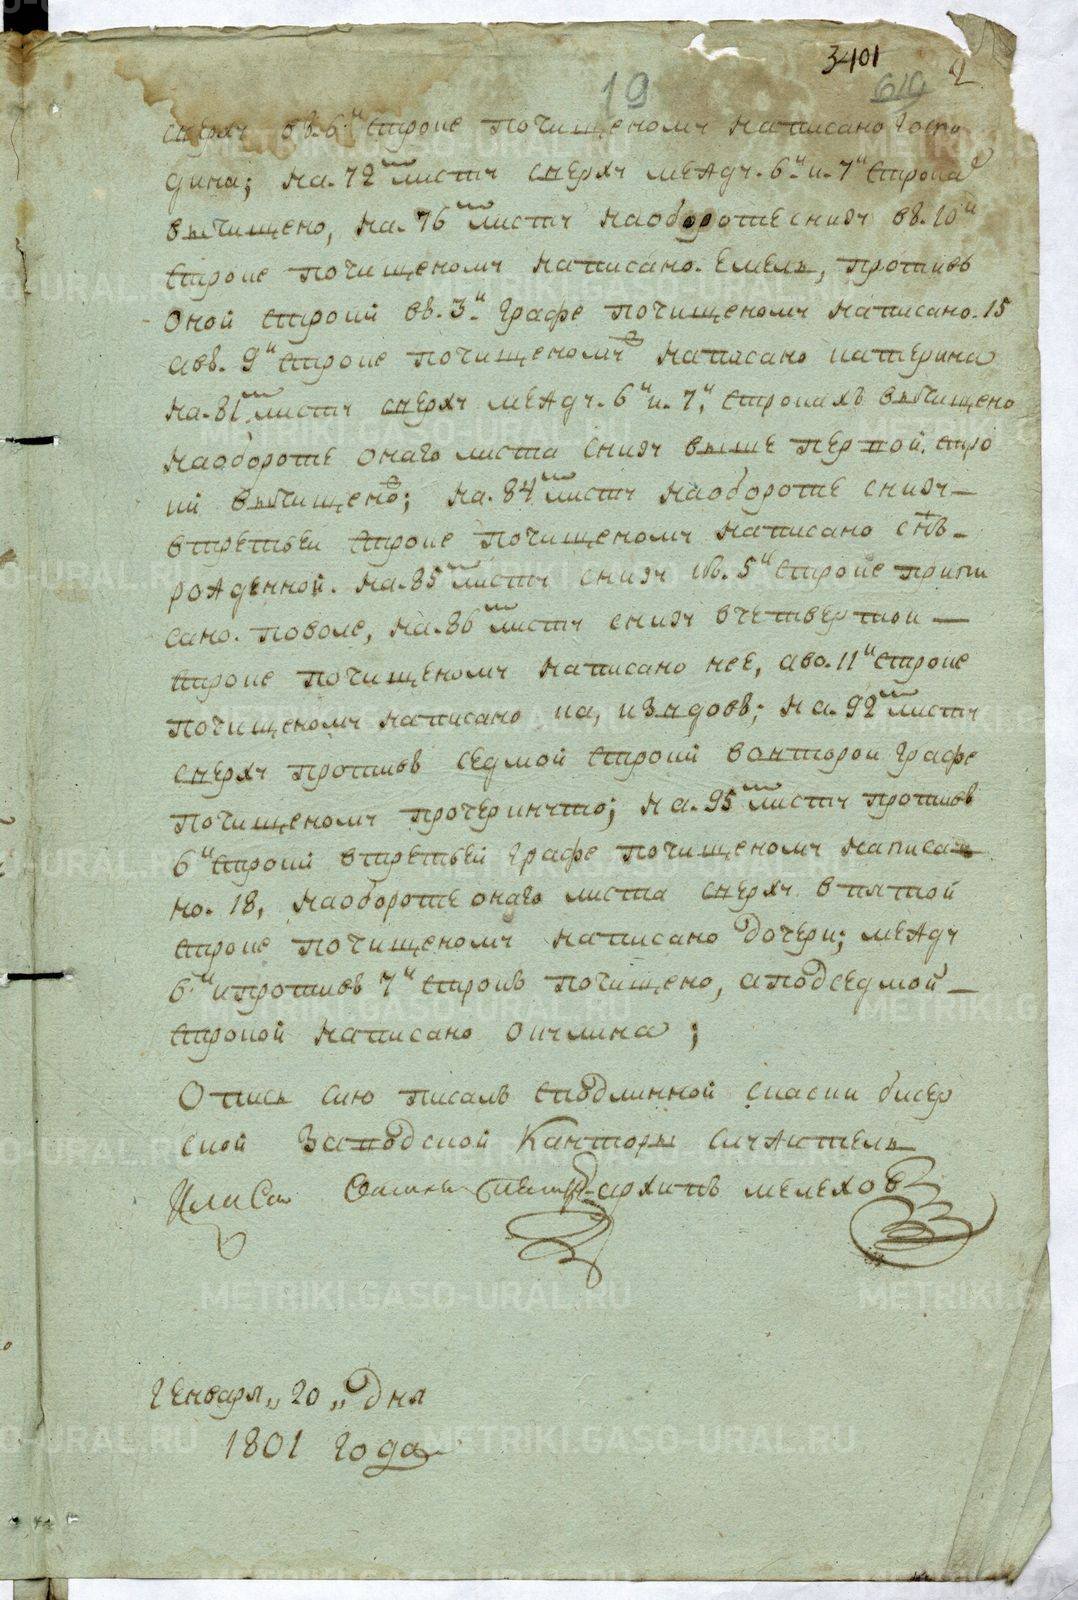 3401
19 619 2
сверху въ 6й строке почищеному написано госпо
дина; на 72мъ листу сверху между 6й и 7й строка
вычищено, на 76мъ листу на обороте снизу въ 10й
строке почищеному написано Емель, противъ
оной строки въ 3й графе почищеному написано 15
а въ 9й строке почищеному написано катерина
на 81мъ листу сверху между 6й и 7й строкахъ вычищено
на обороте онаго листа снизу выше первой стро
ки вычищено; на 84мъ листу на обороте снизу
в третьей строке почищеному написано
рожденной. на 85мъ листу снизу въ 5й строке припи
сано поволе, на 86мъ листу снизу в четвертой
строке почищеному написано нее, а во 11й строке
почищеному написано на 92мъ листу
сверху противъ седмой строки во второй графе
почищеному прочеркнуто; на 95мъ листу противъ
6й строки в третьей графе почищеному написа
но 18, на обороте онаго листа сверху в пятой
строке почищеному написано дочери; между
6й и противъ 7й строкъ почищено, а под седмой
строкой написано окулина;
Опись сию писалъ с подлинной скаски бисер
ской заводской Канторы служитель
архипъ мелеховъ
METRIKI.GASO-URAL.RU
генваря „20„ дня
1801 года